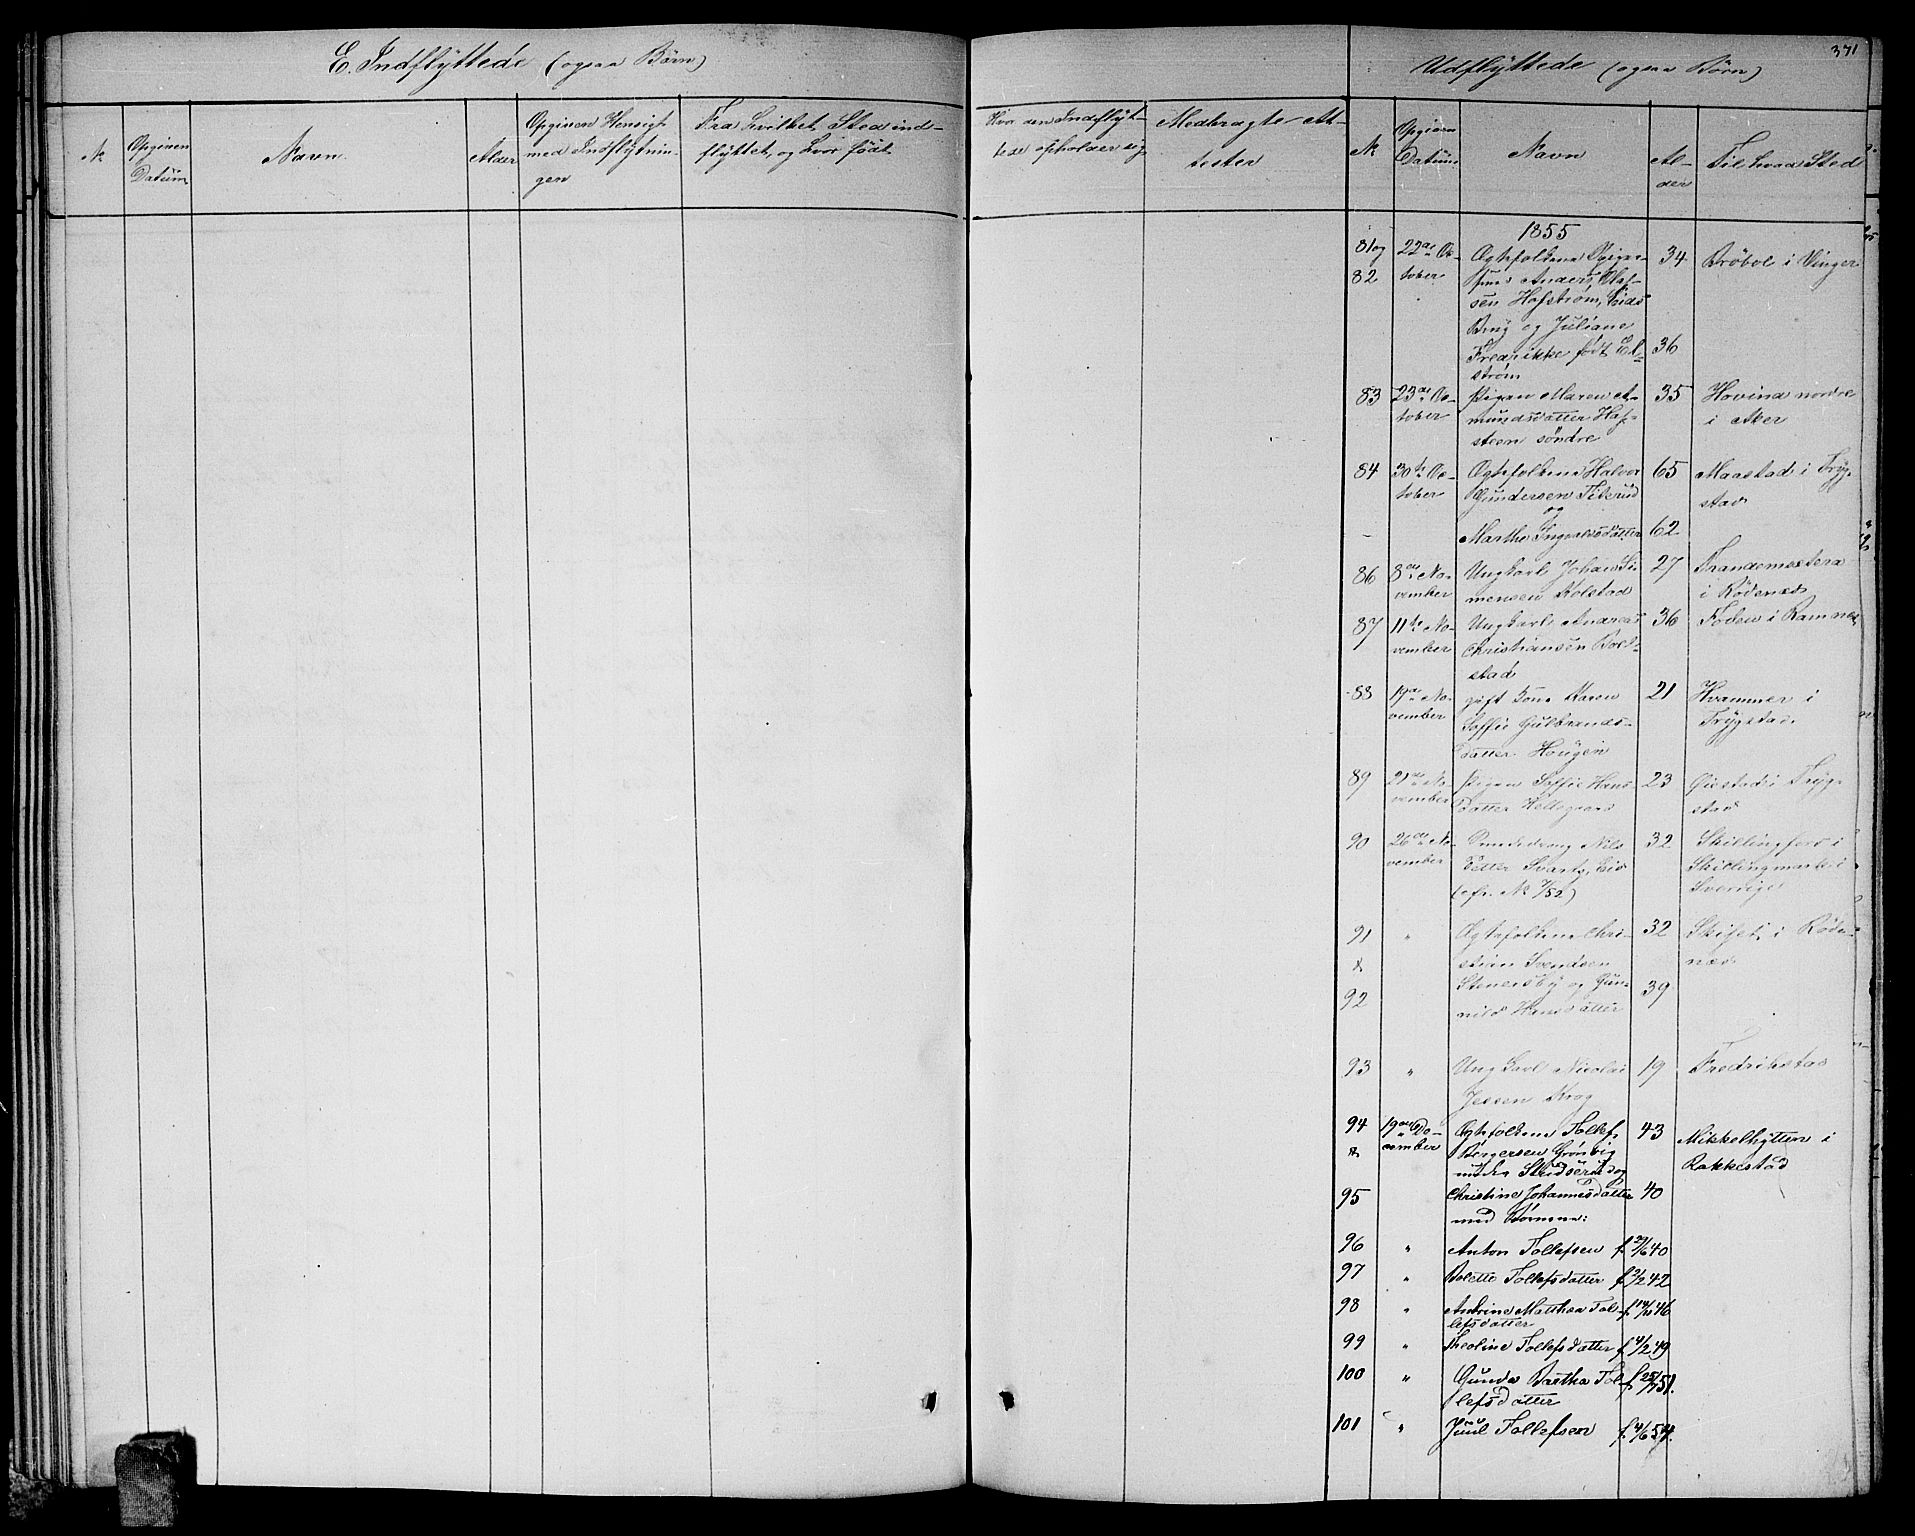 E. Indflyttede (ogsaa Børn)
No
Opgiven
Datum
Navn
Alder
Opgiven Hensigt
med Indflytnin-
gen
Fra hvilket Sted ind-
flyttet, og hvor født
Hvor den Indflyt-
tede opholder sig
Medbragte At-
tester
371
Udflyttede (ogsaa Børn)
No
Opgiven
Datum
Navn
Al-
der
Til hvad Sted
1855
81 og
82
22de Oc-
tober
Ægtefolkene
Anders Olaf-
sen Hafstrøm, Eids
Brug og Juliane
Fredrikke født El-
strøm
34
36
Brøbøl i Vinger
83
23de Oc-
tober
Pigen Maren A-
mundsdatter Haf-
steen søndre
35
Hovind nordre
i Aker
84
30te Oc-
tober
Ægtefolkene Halvor
Gundersen Fikerud
og
65
Maastad i Tryg-
stad
-
Marthe Ingvaldsdatter
62
86
8de No-
vember
Ungkarl Johan Si-
mensen Kolstad
27
Trandemsetera
i Rødenæs
87
11te No-
vember
Ungkarl Andreas
Christiansen Bol-
stad
36
Foden i Ramnes
88
19de No-
vember
gift Kone Karen
Soffie Gulbrands-
datter Hougen
21
Hvammer i
Trygstad
89
21de No-
vember
Pigen Soffie Hans
datter Hellegaard
23
Giestad i Tryg-
stad
90
26de No-
vember
Nils
Petter Svarts, Eid
(cfr. No 7/52)
32
Skillingfors i
Skillingmark i
Sverrige
91
&
92
"
Ægtefolkene Chri-
stian Svendsen
Stenersby og Gun-
nild Hansdatter
32
39
Skiset i Røde-
næs
93
"
Ungkarl Nicolai
Jessen Krog
19
Fredrikstad
94
&
19de De-
cember
Ægtefolkene Tollef
Børgersen Grønbig
under Skridserud og
43
Mikkelhytten i
Rakkestad
95
Christine Johannesdatter
med Børnene:
40
96
"
Anton Tollefsen
f 29/6 40
97
"
Bolette Tollefsdatter
f 2/2 42
98
"
Andrine Matthea Tol-
lefsdatter
f 14/10 46
99
"
Theoline Tollefsdatter
f 4/2 49
100
"
Gunda Bertha Tol-
lefsdatter
f 25/7 51.
101
"
Juul Tollefsen
f. 4/6 54.